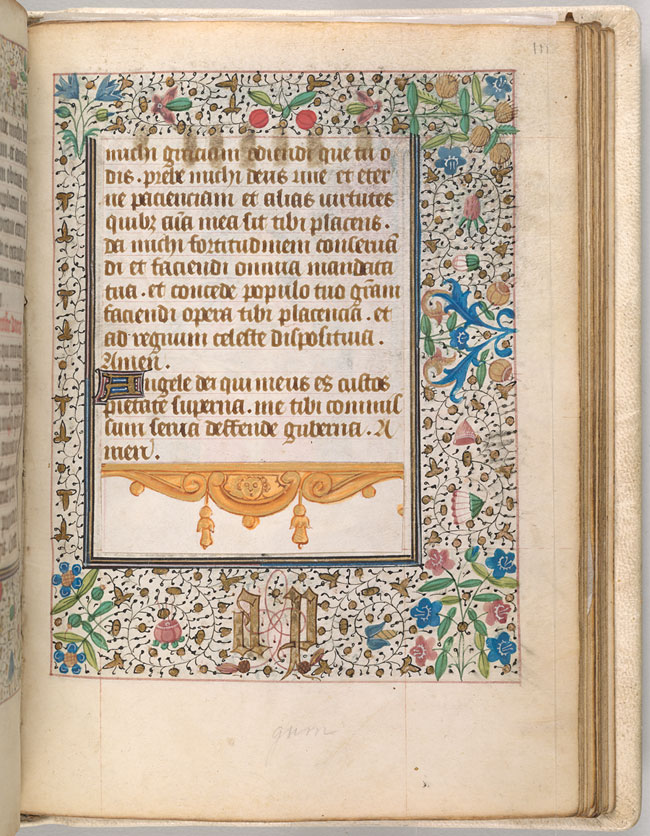 michi graciam odiendi que tu o
dis . prebe michi deus uiue et eter
ne pacienciam et alias uirtutes
quibz aīa mea sit tibi placens .
da michi fortitudinem conseruā
di et faciendi omnia mandata
tua . et concede populo tuo grām
faciendi opera tibi placencia . et
ad regnum celeste dispositiua .
Amen .
Angele dei qui meus es custos
pietate superna . me tibi commis
sum serua deffende guberna . A
men .
a p